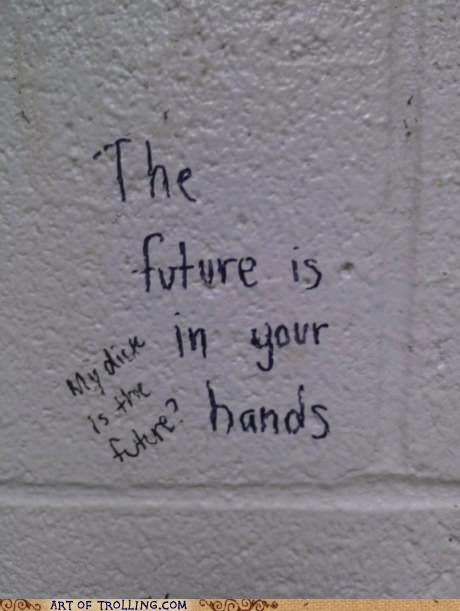 The
future is
in your
hands
My dick
is the
future?
ART OF TROLLING.COM